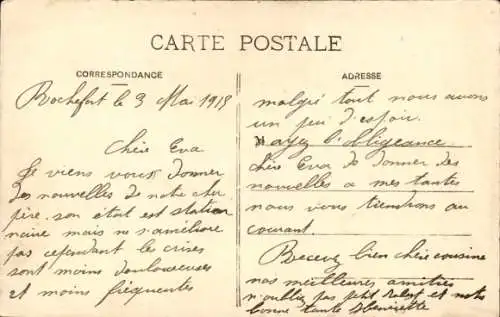 CARTE POSTALE
CORRESPONDANCE
Rochefort le 3 Mai 1918
Chère Eva
Je viens vous donner
des nouvelles de notre cher
père. son état est station
naire mais ne s'améliore
pas cependant les crises
sont moins douloureuses
et moins fréquentes
ADRESSE
malgré tout nous avons
un peu d'espoir.
ayez l'obligeance
chère Eva de donner des
nouvelles a mes tantes
nous vous tiendrons au
courant.
Recevez bien chère cousine
nos meilleures amitiés
n'oubliez pas petit et notre
bonne tante